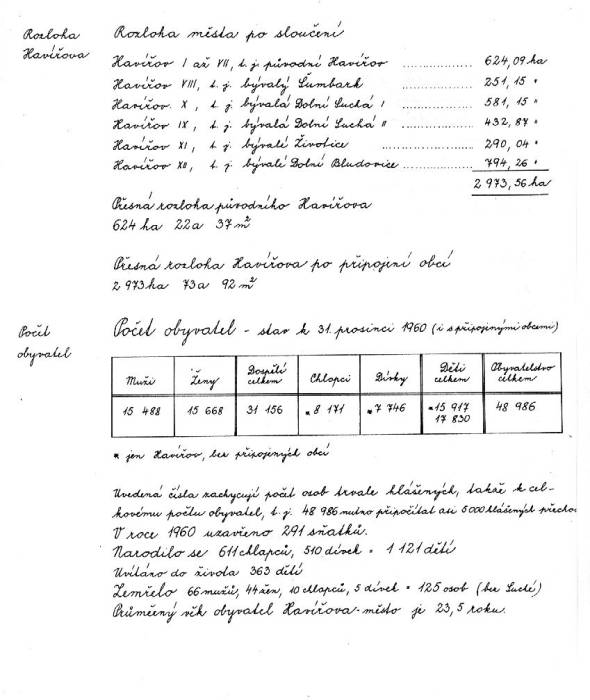 Rozloha
Havířova
Rozloha města po sloučení
Havířov I až VII, t. j. původní Havířov ........ 624,09 ha
Havířov VIII, t. j. bývalý Šumbark ........ 251,15 "
Havířov X, t. j. bývalá Dolní Suchá I ........ 581,15 "
Havířov IX, t. j. bývalá Dolní Suchá II ........ 432,87 "
Havířov XI, t. j. bývalé Životice ........ 290,04 "
Havířov XII, t. j. bývalé Dolní Bludovice ........ 794,26 "
2 973,56 ha
Přesná rozloha původního Havířova
624 ha 22 a 37 m²
Přesná rozloha Havířova po připojení obcí
2 973 ha 73 a 92 m²
Počet
obyvatel
Počet obyvatel - stav k 31. prosinci 1960 (i s připojenými obcemi)
Muži Ženy Dospělí celkem Chlapci Dívky Děti celkem Obyvatelstvo celkem
15 488 15 668 31 156 * 8 171 * 7 746 * 15 917 48 986
17 830
* jen Havířov, bez připojených obcí
Uvedená čísla zachycují počet osob trvale hlášených, takže k cel-
kovému počtu obyvatel, t. j. 48 986 nutno připočítat asi 5 000 hlášených přecho
V roce 1960 uzavřeno 291 sňatků.
Narodilo se 611 chlapců, 510 dívek = 1 121 dětí
Uvítáno do života 363 dětí
Zemřelo 66 mužů, 44 žen, 10 chlapců, 5 dívek = 125 osob (bez Suché)
Průměrný věk obyvatel Havířova-město je 23,5 roku.